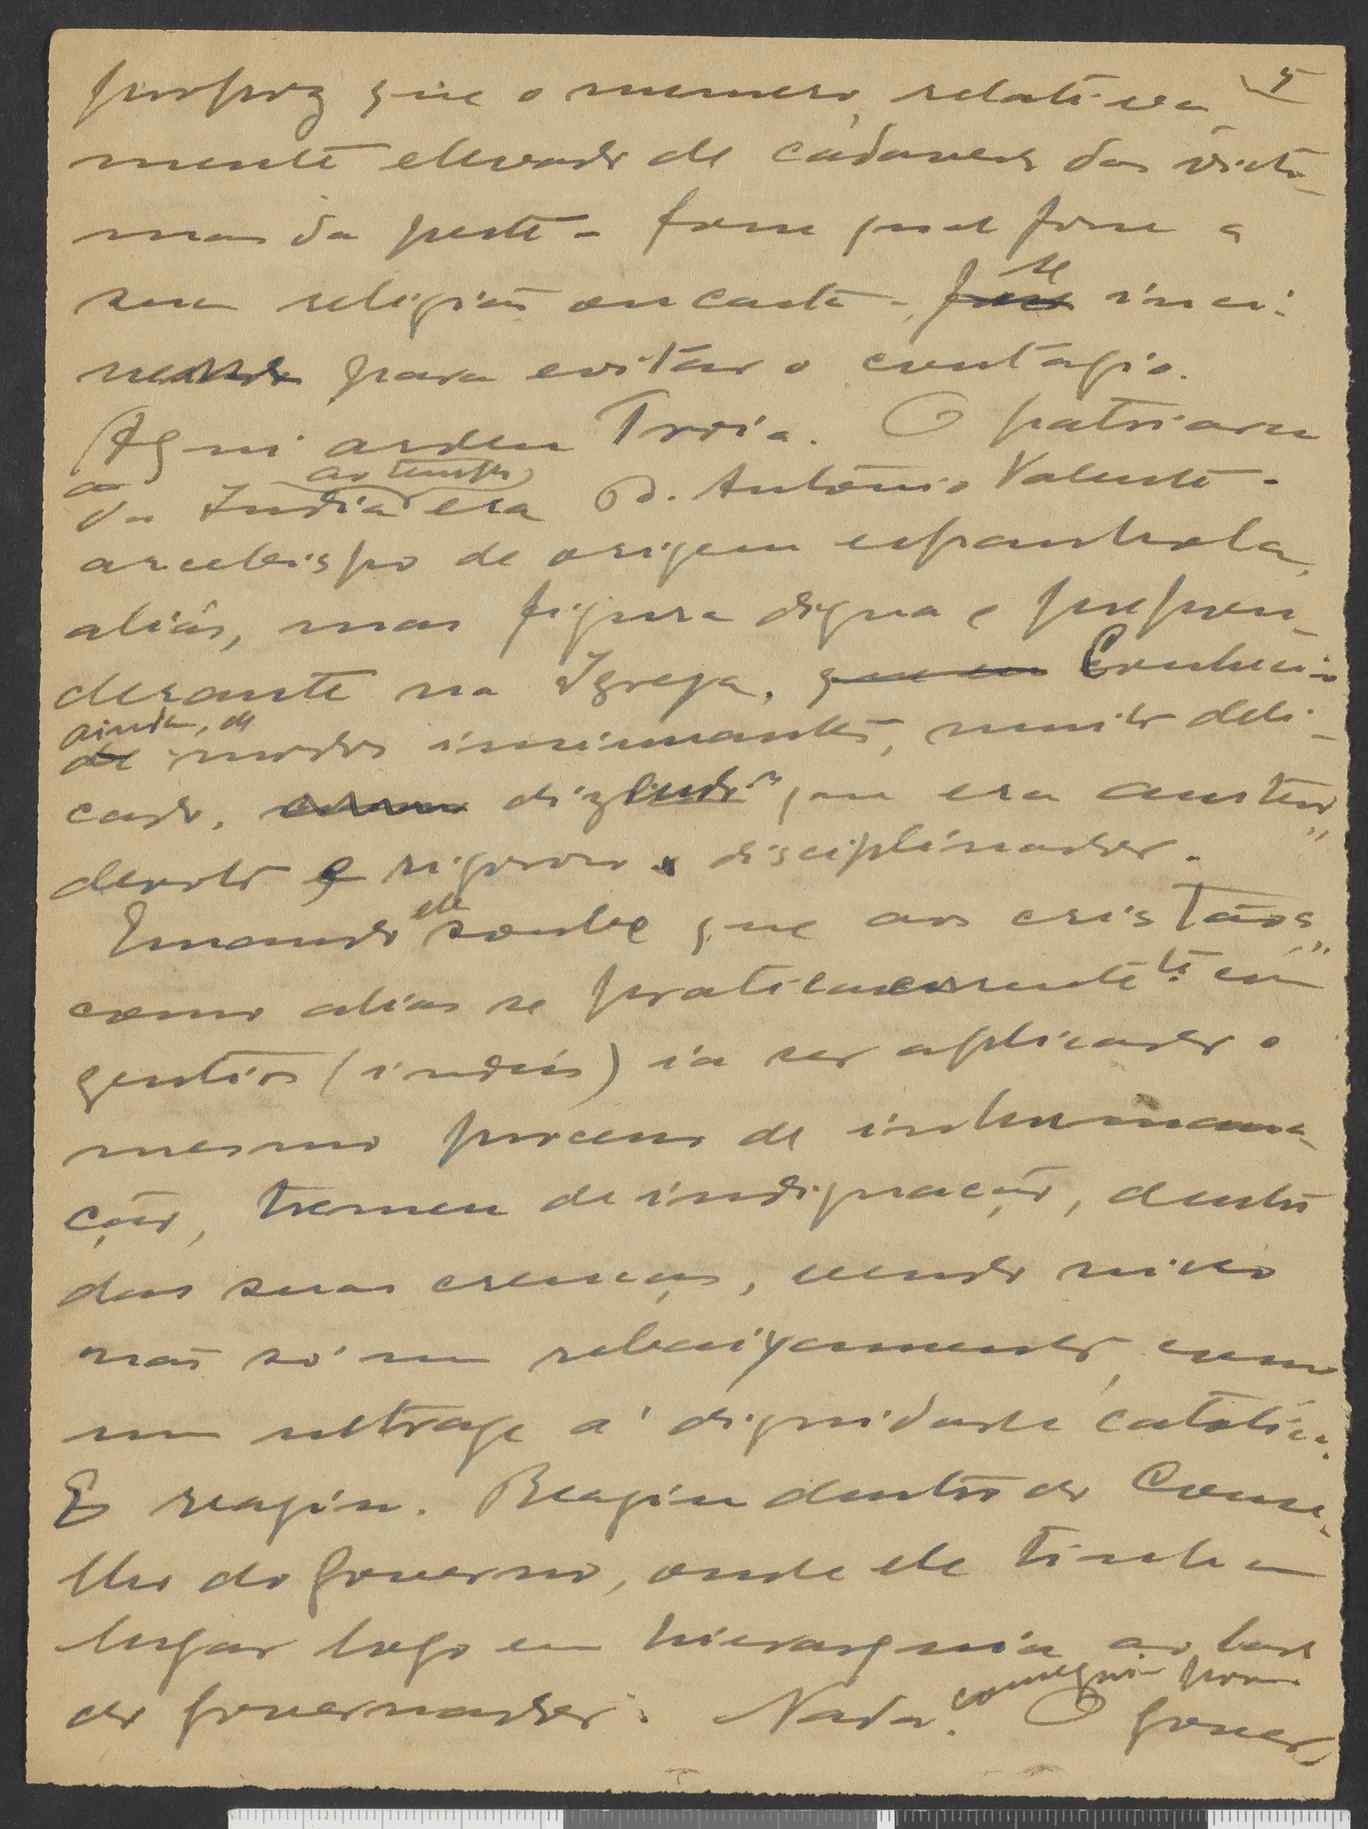 5
propoz que o numero, relativa
mente elevado de cadaveres das victi-
mas da peste - fosse qual fosse a
sua religião ou casta - fosse se inci-
nerasse para evitar o contagio.
Aqui ardeu Troia. O patriarca
da India ao tempo era D. António Valente -
arcebispo de origem espanhola,
aliás, mas figura digna e prepon-
derante na Igreja, Conhecido
ainda, de modos insinuantes, muito deli-
cado, dizendo que era austero
devoto e rigoroso disciplinador.
Quando ele soube que aos cristãos
como aliás se praticava com
gentios (indús) ia ser aplicado o
mesmo processo de inhumana-
ção, tremeu de indignação, dentro
das suas crenças, vendo nisso
não só um rebaixamento, como
um ultrage á dignidade católica.
E reagiu. Reagiu dentro do Conse-
lho do Governo, onde ele tinha
lugar logo em hierarquia ao lado
do governador. Nada conseguiu porem. O gover-